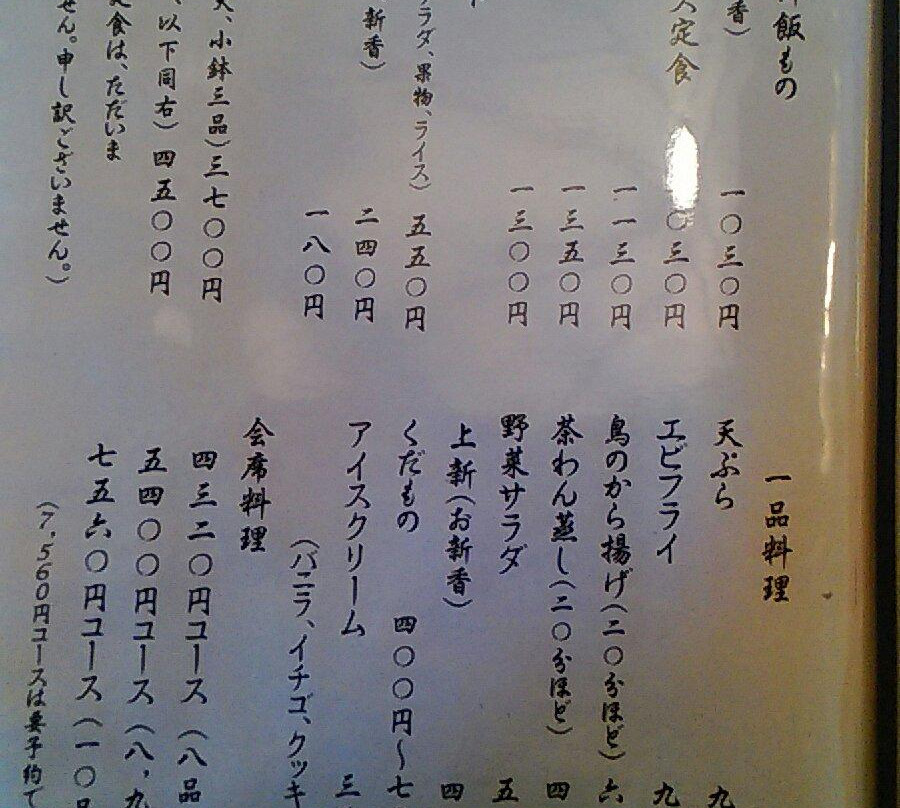 飯もの
香）
一〇三〇円
定食
〇三〇円
一一三〇円
一三五〇円
一三〇〇円
ラダ、果物、ライス）五五〇円
新香）
二四〇円
一八〇円
、小鉢三品）三七〇〇円
、以下同右）四五〇〇円
定食は、ただいま
せん。申し訳ございません。）
一品料理
天ぷら
九
エビフライ
九
鳥のから揚げ（二〇分ほど）
六
茶わん蒸し（二〇分ほど）
四
野菜サラダ
五
上新（お新香）
四
くだもの 四〇〇円〜七
アイスクリーム
三
（バニラ、イチゴ、クッキ
会席料理
四三二〇円コース（八品
五四〇〇円コース（八,九
七五六〇円コース（一〇品
（7,560円コースは要予約で